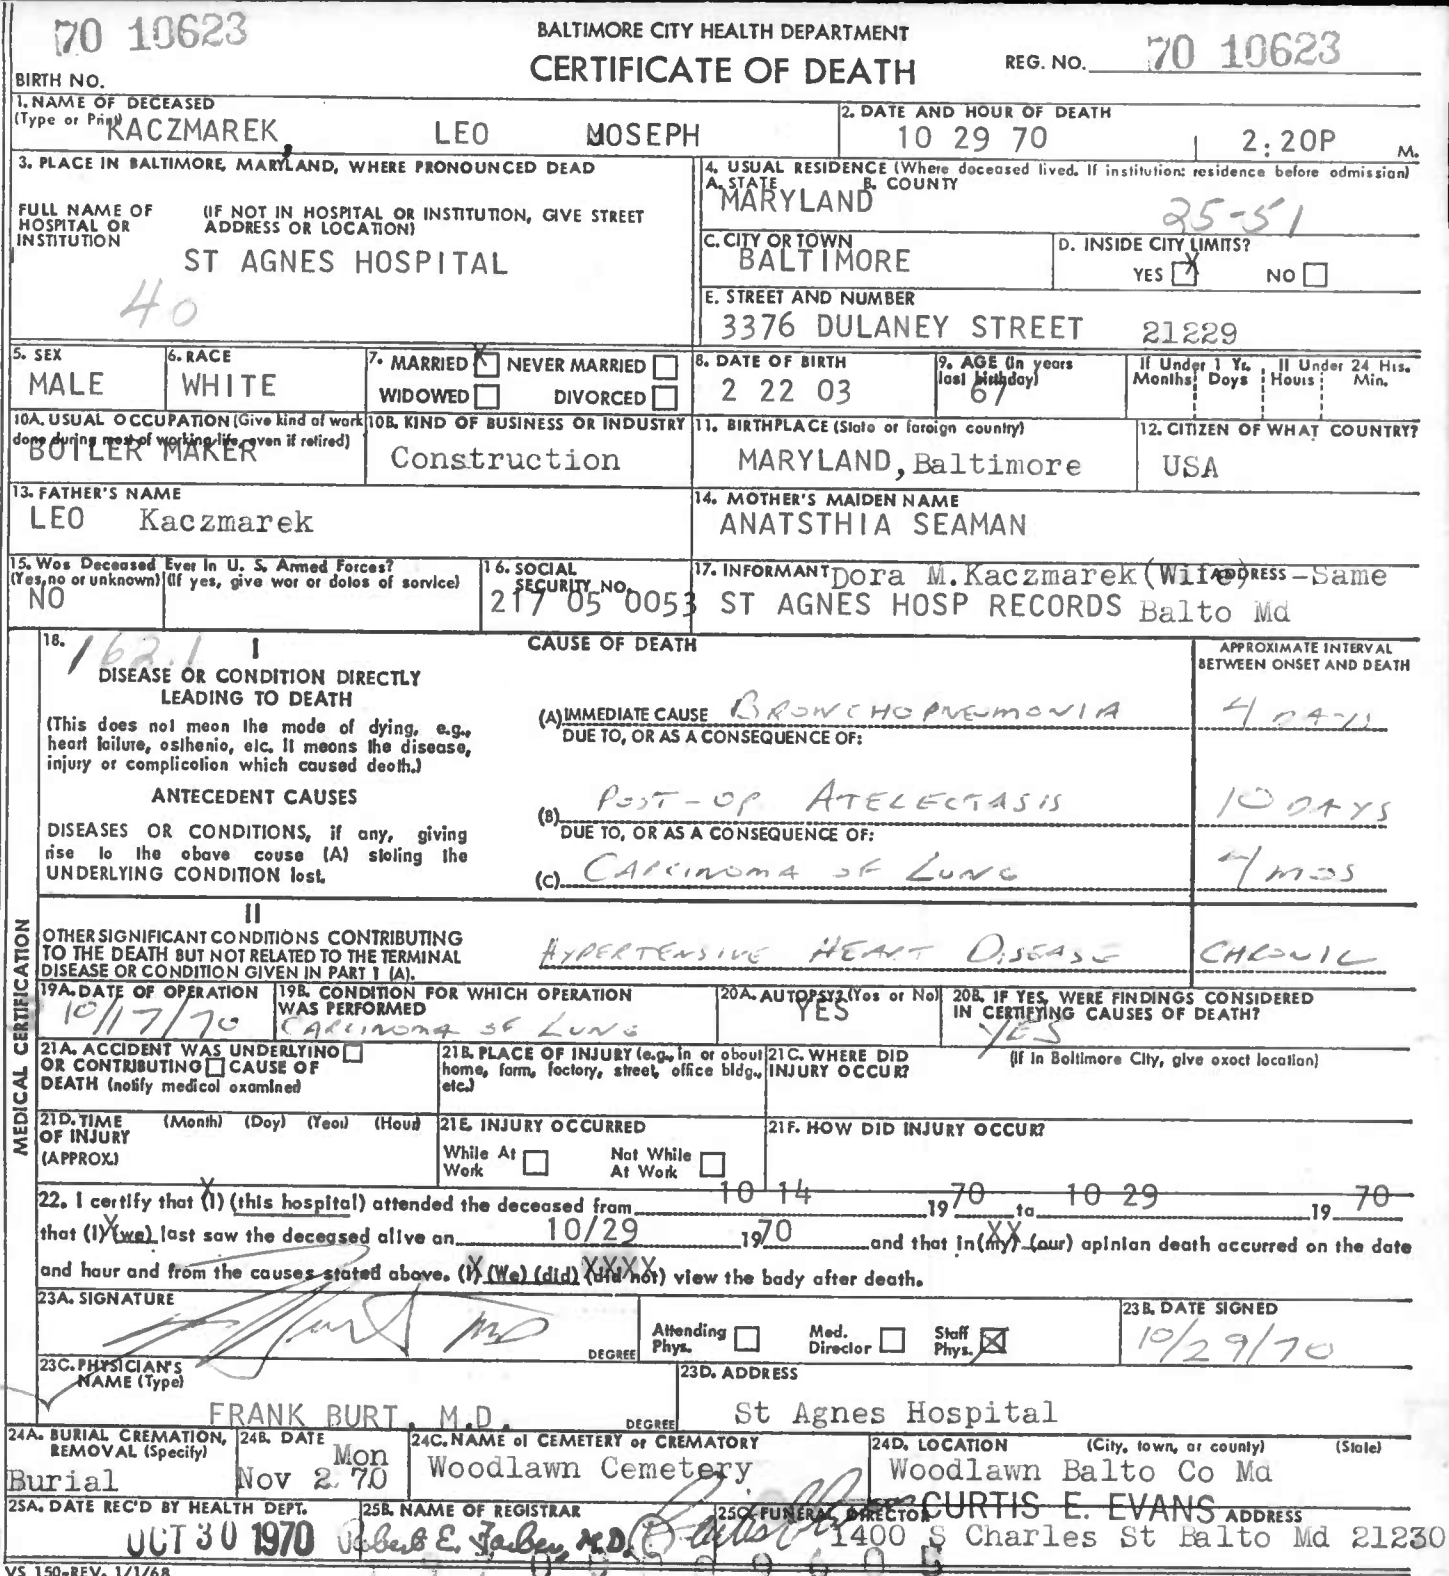 70 10623
BALTIMORE CITY HEALTH DEPARTMENT
CERTIFICATE OF DEATH
REG. NO. 70 10623
BIRTH NO.
1. NAME OF DECEASED (Type or Print)
KACZMAREK, LEO MOSEPH
2. DATE AND HOUR OF DEATH
10 29 70 2:20P M.
3. PLACE IN BALTIMORE, MARYLAND, WHERE PRONOUNCED DEAD
FULL NAME OF HOSPITAL OR INSTITUTION
(IF NOT IN HOSPITAL OR INSTITUTION, GIVE STREET ADDRESS OR LOCATION)
ST AGNES HOSPITAL
40
4. USUAL RESIDENCE (Where deceased lived. If institution: residence before admission)
A. STATE B. COUNTY
MARYLAND 25-51
C. CITY OR TOWN
BALTIMORE
D. INSIDE CITY LIMITS?
YES X NO
E. STREET AND NUMBER
3376 DULANEY STREET 21229
5. SEX
MALE
6. RACE
WHITE
7. MARRIED X NEVER MARRIED
WIDOWED DIVORCED
8. DATE OF BIRTH
2 22 03
9. AGE (In years last birthday)
67
If Under 1 Yr. Months Days
If Under 24 Hrs. Hours Min.
10A. USUAL OCCUPATION (Give kind of work done during most of working life, even if retired)
BOILER MAKER
10B. KIND OF BUSINESS OR INDUSTRY
Construction
11. BIRTHPLACE (State or foreign country)
MARYLAND, Baltimore
12. CITIZEN OF WHAT COUNTRY?
USA
13. FATHER'S NAME
LEO Kaczmarek
14. MOTHER'S MAIDEN NAME
ANATSTHIA SEAMAN
15. Was Deceased Ever in U. S. Armed Forces?
(Yes, no or unknown) (If yes, give war or dates of service)
NO
16. SOCIAL SECURITY NO.
217 05 0053
17. INFORMANT ADDRESS
Dora M. Kaczmarek (Wife) -Same
ST AGNES HOSP RECORDS Balto Md
MEDICAL CERTIFICATION
18. 162.1 I
CAUSE OF DEATH
APPROXIMATE INTERVAL BETWEEN ONSET AND DEATH
DISEASE OR CONDITION DIRECTLY LEADING TO DEATH
(This does not mean the mode of dying, e.g., heart failure, asthenia, etc. It means the disease, injury or complication which caused death.)
(A) IMMEDIATE CAUSE BRONCHOPNEUMONIA 4 DAYS
DUE TO, OR AS A CONSEQUENCE OF:
ANTECEDENT CAUSES
DISEASES OR CONDITIONS, if any, giving rise to the above cause (A) stating the UNDERLYING CONDITION last.
(B) POST-OP ATELECTASIS 10 DAYS
DUE TO, OR AS A CONSEQUENCE OF:
(C) CARCINOMA OF LUNG 4 MOS
II
OTHER SIGNIFICANT CONDITIONS CONTRIBUTING TO THE DEATH BUT NOT RELATED TO THE TERMINAL DISEASE OR CONDITION GIVEN IN PART I (A).
HYPERTENSIVE HEART DISEASE CHRONIC
19A. DATE OF OPERATION
10/17/70
19B. CONDITION FOR WHICH OPERATION WAS PERFORMED
CARCINOMA OF LUNG
20A. AUTOPSY? (Yes or No)
YES
20B. IF YES, WERE FINDINGS CONSIDERED IN CERTIFYING CAUSES OF DEATH?
YES
21A. ACCIDENT WAS UNDERLYING OR CONTRIBUTING CAUSE OF DEATH (notify medical examined
21B. PLACE OF INJURY (e.g., in or about home, farm, factory, street, office bldg., etc.)
21C. WHERE DID INJURY OCCUR?
(If in Baltimore City, give exact location)
21D. TIME OF INJURY (APPROX.) (Month) (Day) (Year) (Hour)
21E. INJURY OCCURRED
While At Work Not While At Work
21F. HOW DID INJURY OCCUR?
22. I certify that (I) (this hospital) attended the deceased from 10 14 1970 to 10 29 1970
that (I) (we) last saw the deceased alive on 10/29 1970 and that in (my) (our) opinion death occurred on the date
and hour and from the causes stated above. (I) (We) (did) (did not) view the body after death.
23A. SIGNATURE
DEGREE
Attending Phys. Med. Director Staff Phys. X
23B. DATE SIGNED
10/29/70
23C. PHYSICIAN'S NAME (Type)
FRANK BURT, M.D. DEGREE
23D. ADDRESS
St Agnes Hospital
24A. BURIAL CREMATION, REMOVAL (Specify)
Burial
24B. DATE
Mon
Nov 2 70
24C. NAME of CEMETERY or CREMATORY
Woodlawn Cemetery
24D. LOCATION (City, town, or county) (State)
Woodlawn Balto Co Md
25A. DATE REC'D BY HEALTH DEPT.
OCT 30 1970
25B. NAME OF REGISTRAR
Robert E. Farber, M.D.
25C. FUNERAL DIRECTOR ADDRESS
CURTIS E. EVANS
1400 S Charles St Balto Md 21230
VS 150-REV. 1/1/68